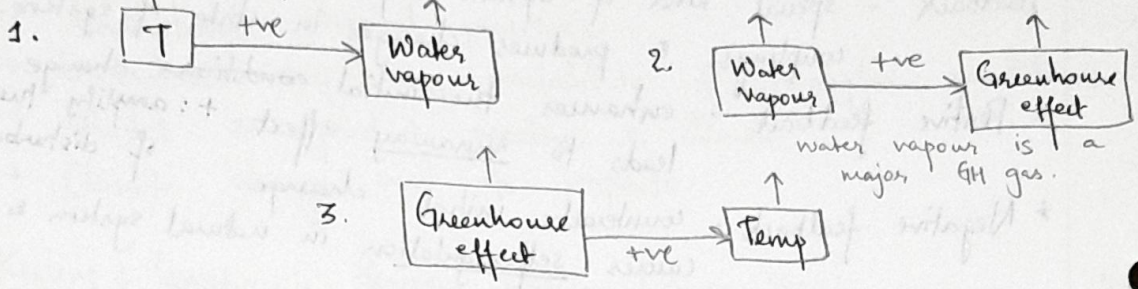 1. T +ve Water vapour
2. Water vapour +ve Greenhouse effect
water vapour is a
major GH gas.
3. Greenhouse effect +ve Temp